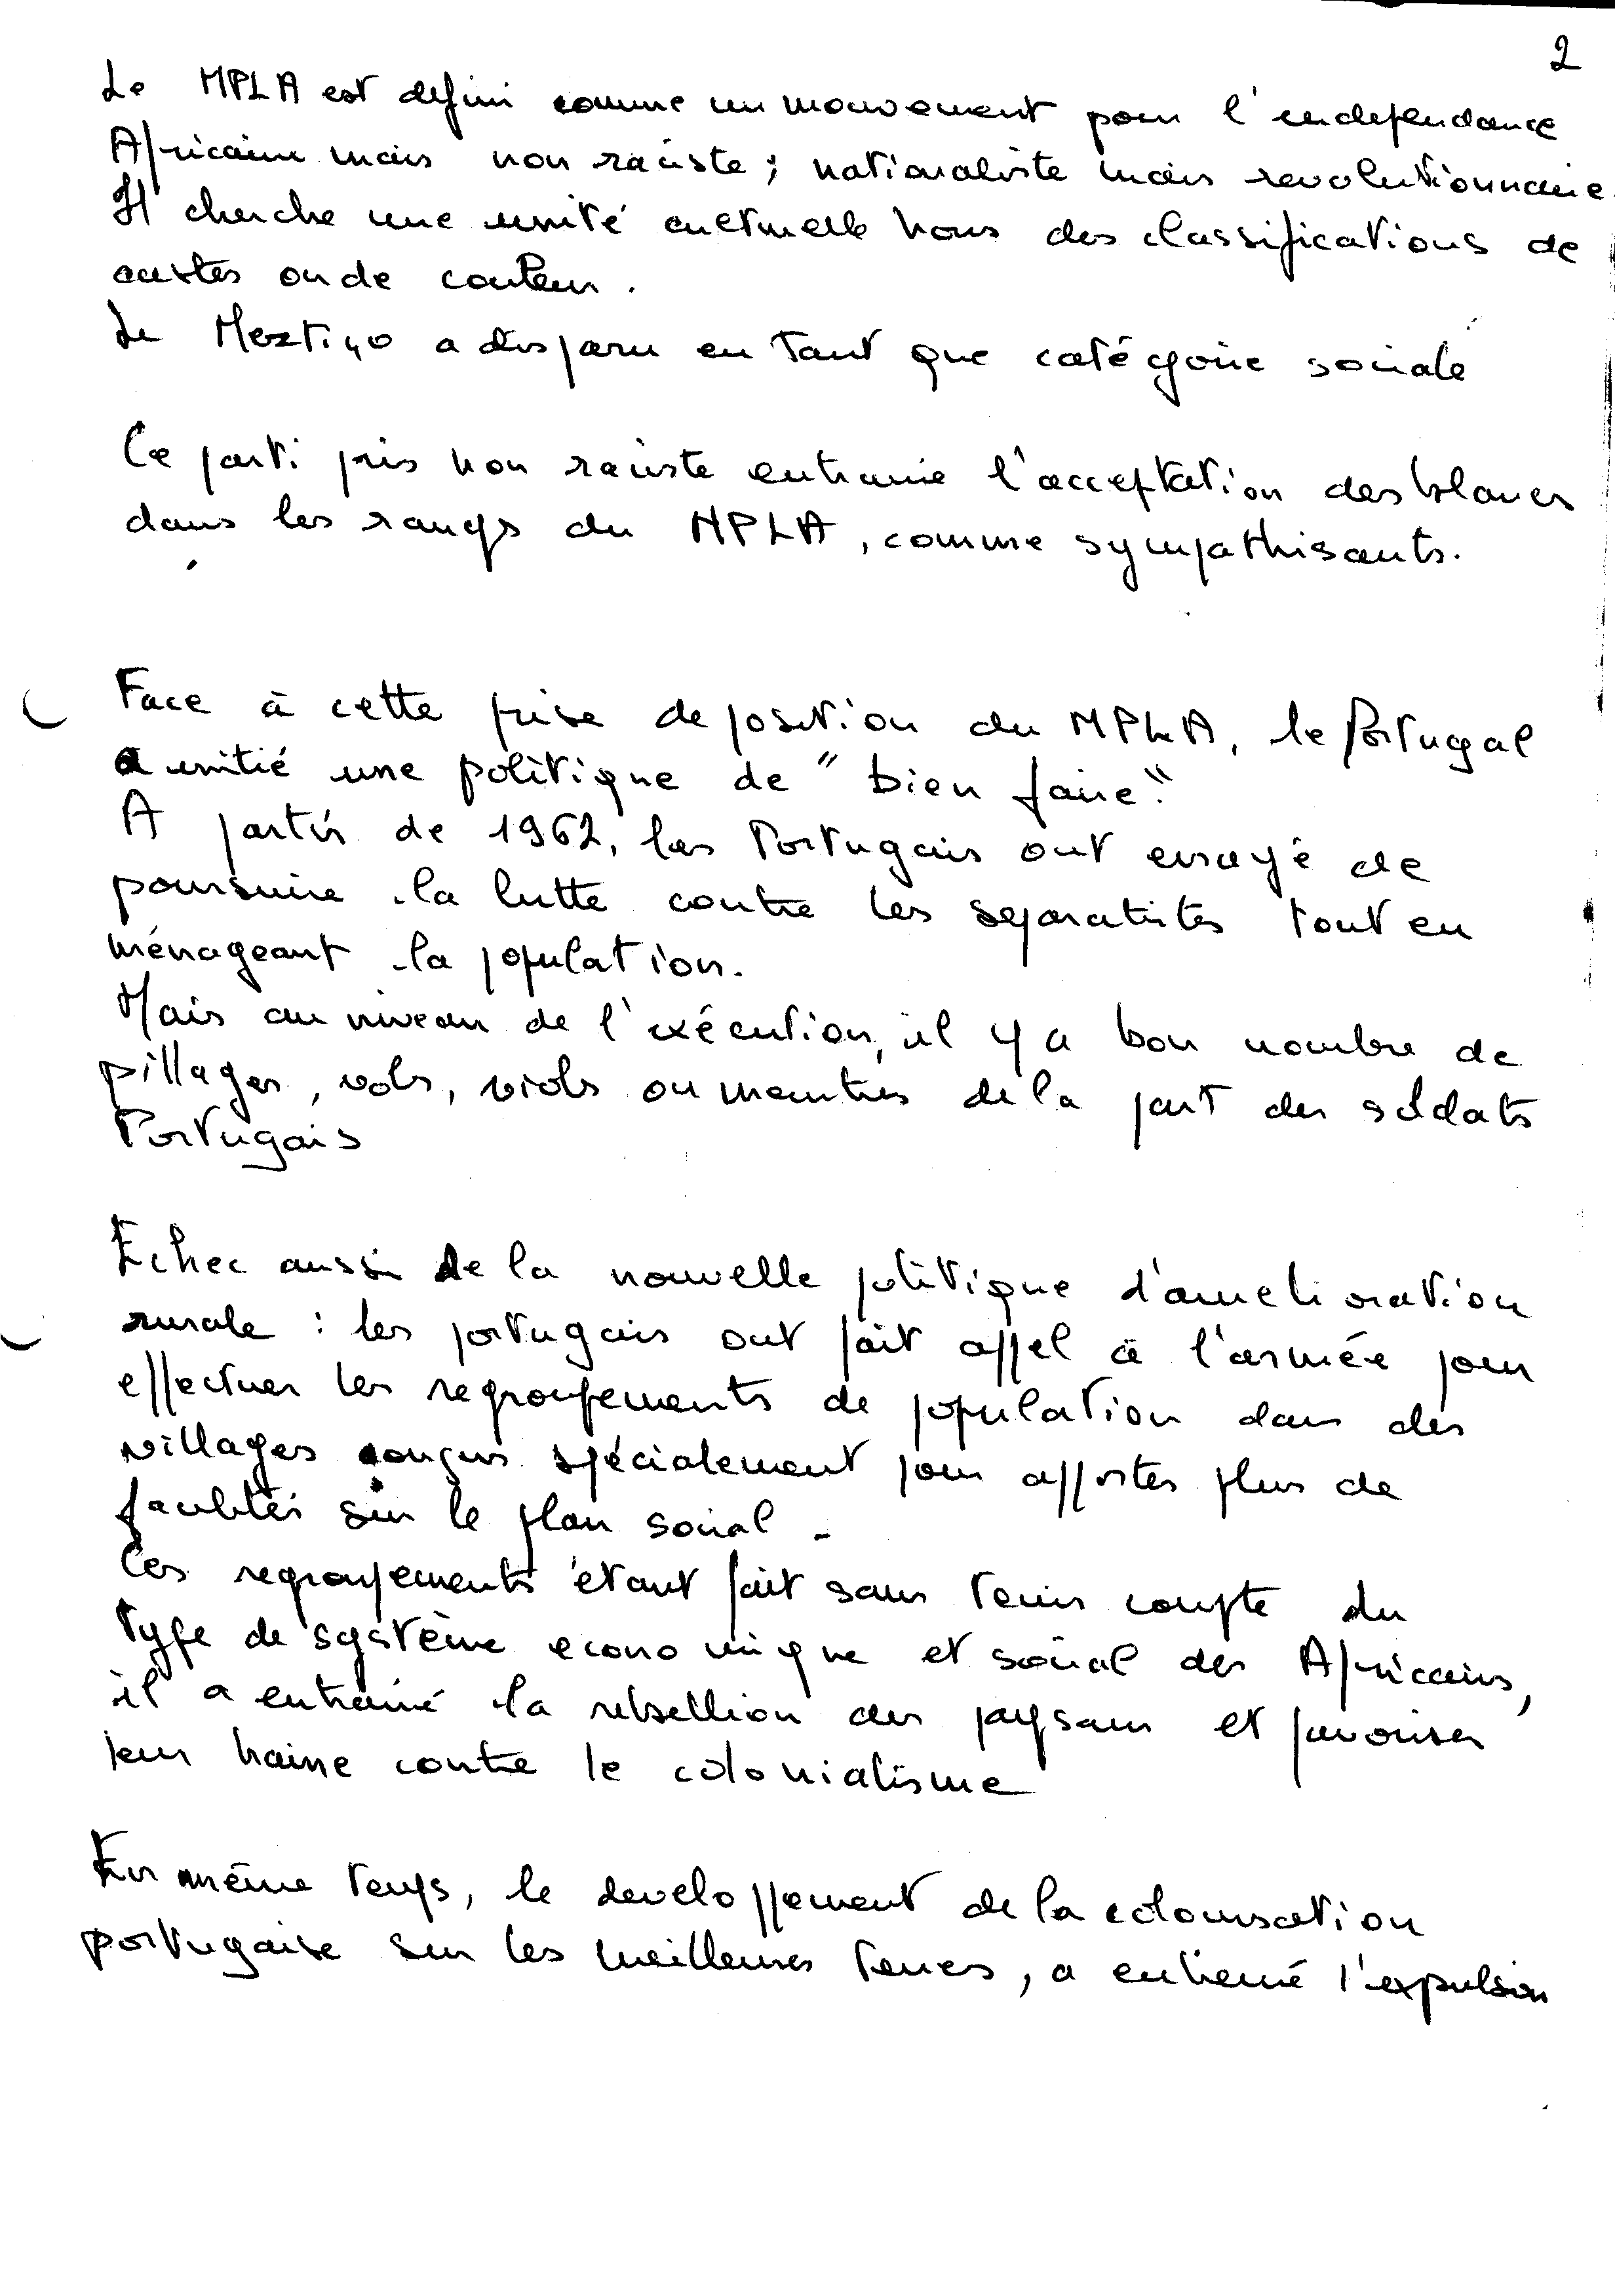 2
Le MPLA est defini comme un mouvement pour l'independance
Africaine mais non raciste ; nationaliste mais revolutionnaire.
Il cherche une unité culturelle hors des classifications de
castes ou de couleur.
Le Meztiço a disparu en tant que catégorie sociale
Ce parti pris non raciste entraine l'acceptation des blancs
dans les rangs du MPLA, comme sympathisants.
Face à cette prise de position du MPLA, le Portugal
a initié une politique de "bien faire".
A partir de 1962, les Portugais ont essayé de
poursuivre la lutte contre les separatistes tout en
ménageant la population.
Mais au niveau de l'exécution, il y a bon nombre de
pillages, vols, viols ou meurtres de la part des soldats
Portugais
Echec aussi de la nouvelle politique d'amelioration
rurale : les portugais ont fait appel à l'armée pour
effectuer les regroupements de population dans des
villages conçus spécialement pour apporter plus de
facilités sur le plan social -
Ces regroupements étant fait sans tenir compte du
type de système economique et social des Africains,
il a entrainé la rebellion des paysans et favoriser
leur haine contre le colonialisme
En même temps, le developpement de la colonisation
portugaise sur les meilleures terres, a entrainé l'expulsion